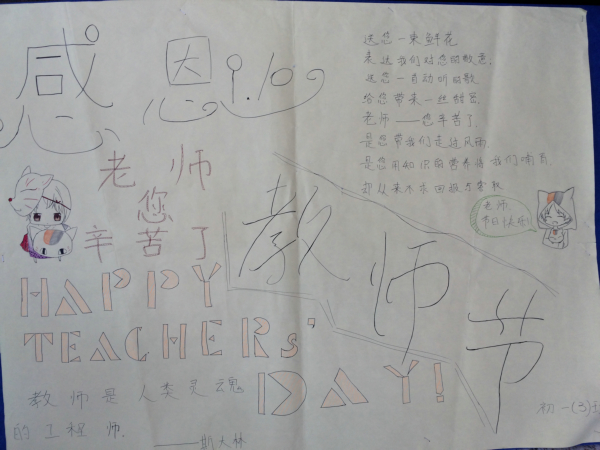 感恩9.10
送您一束鲜花
表达我们对您的敬意.
送您一首动听的歌
给您带来一丝甜蜜.
老师——您辛苦了
是您带我们走过风雨.
是您用知识的营养将我们哺育
却从来不求回报与索取
老师
您
辛苦了
老师
节日快乐!
教师节
HAPPY
TEACHERs'
DAY!
教师是人类灵魂
的工程师.
——斯大林
初一(3)班